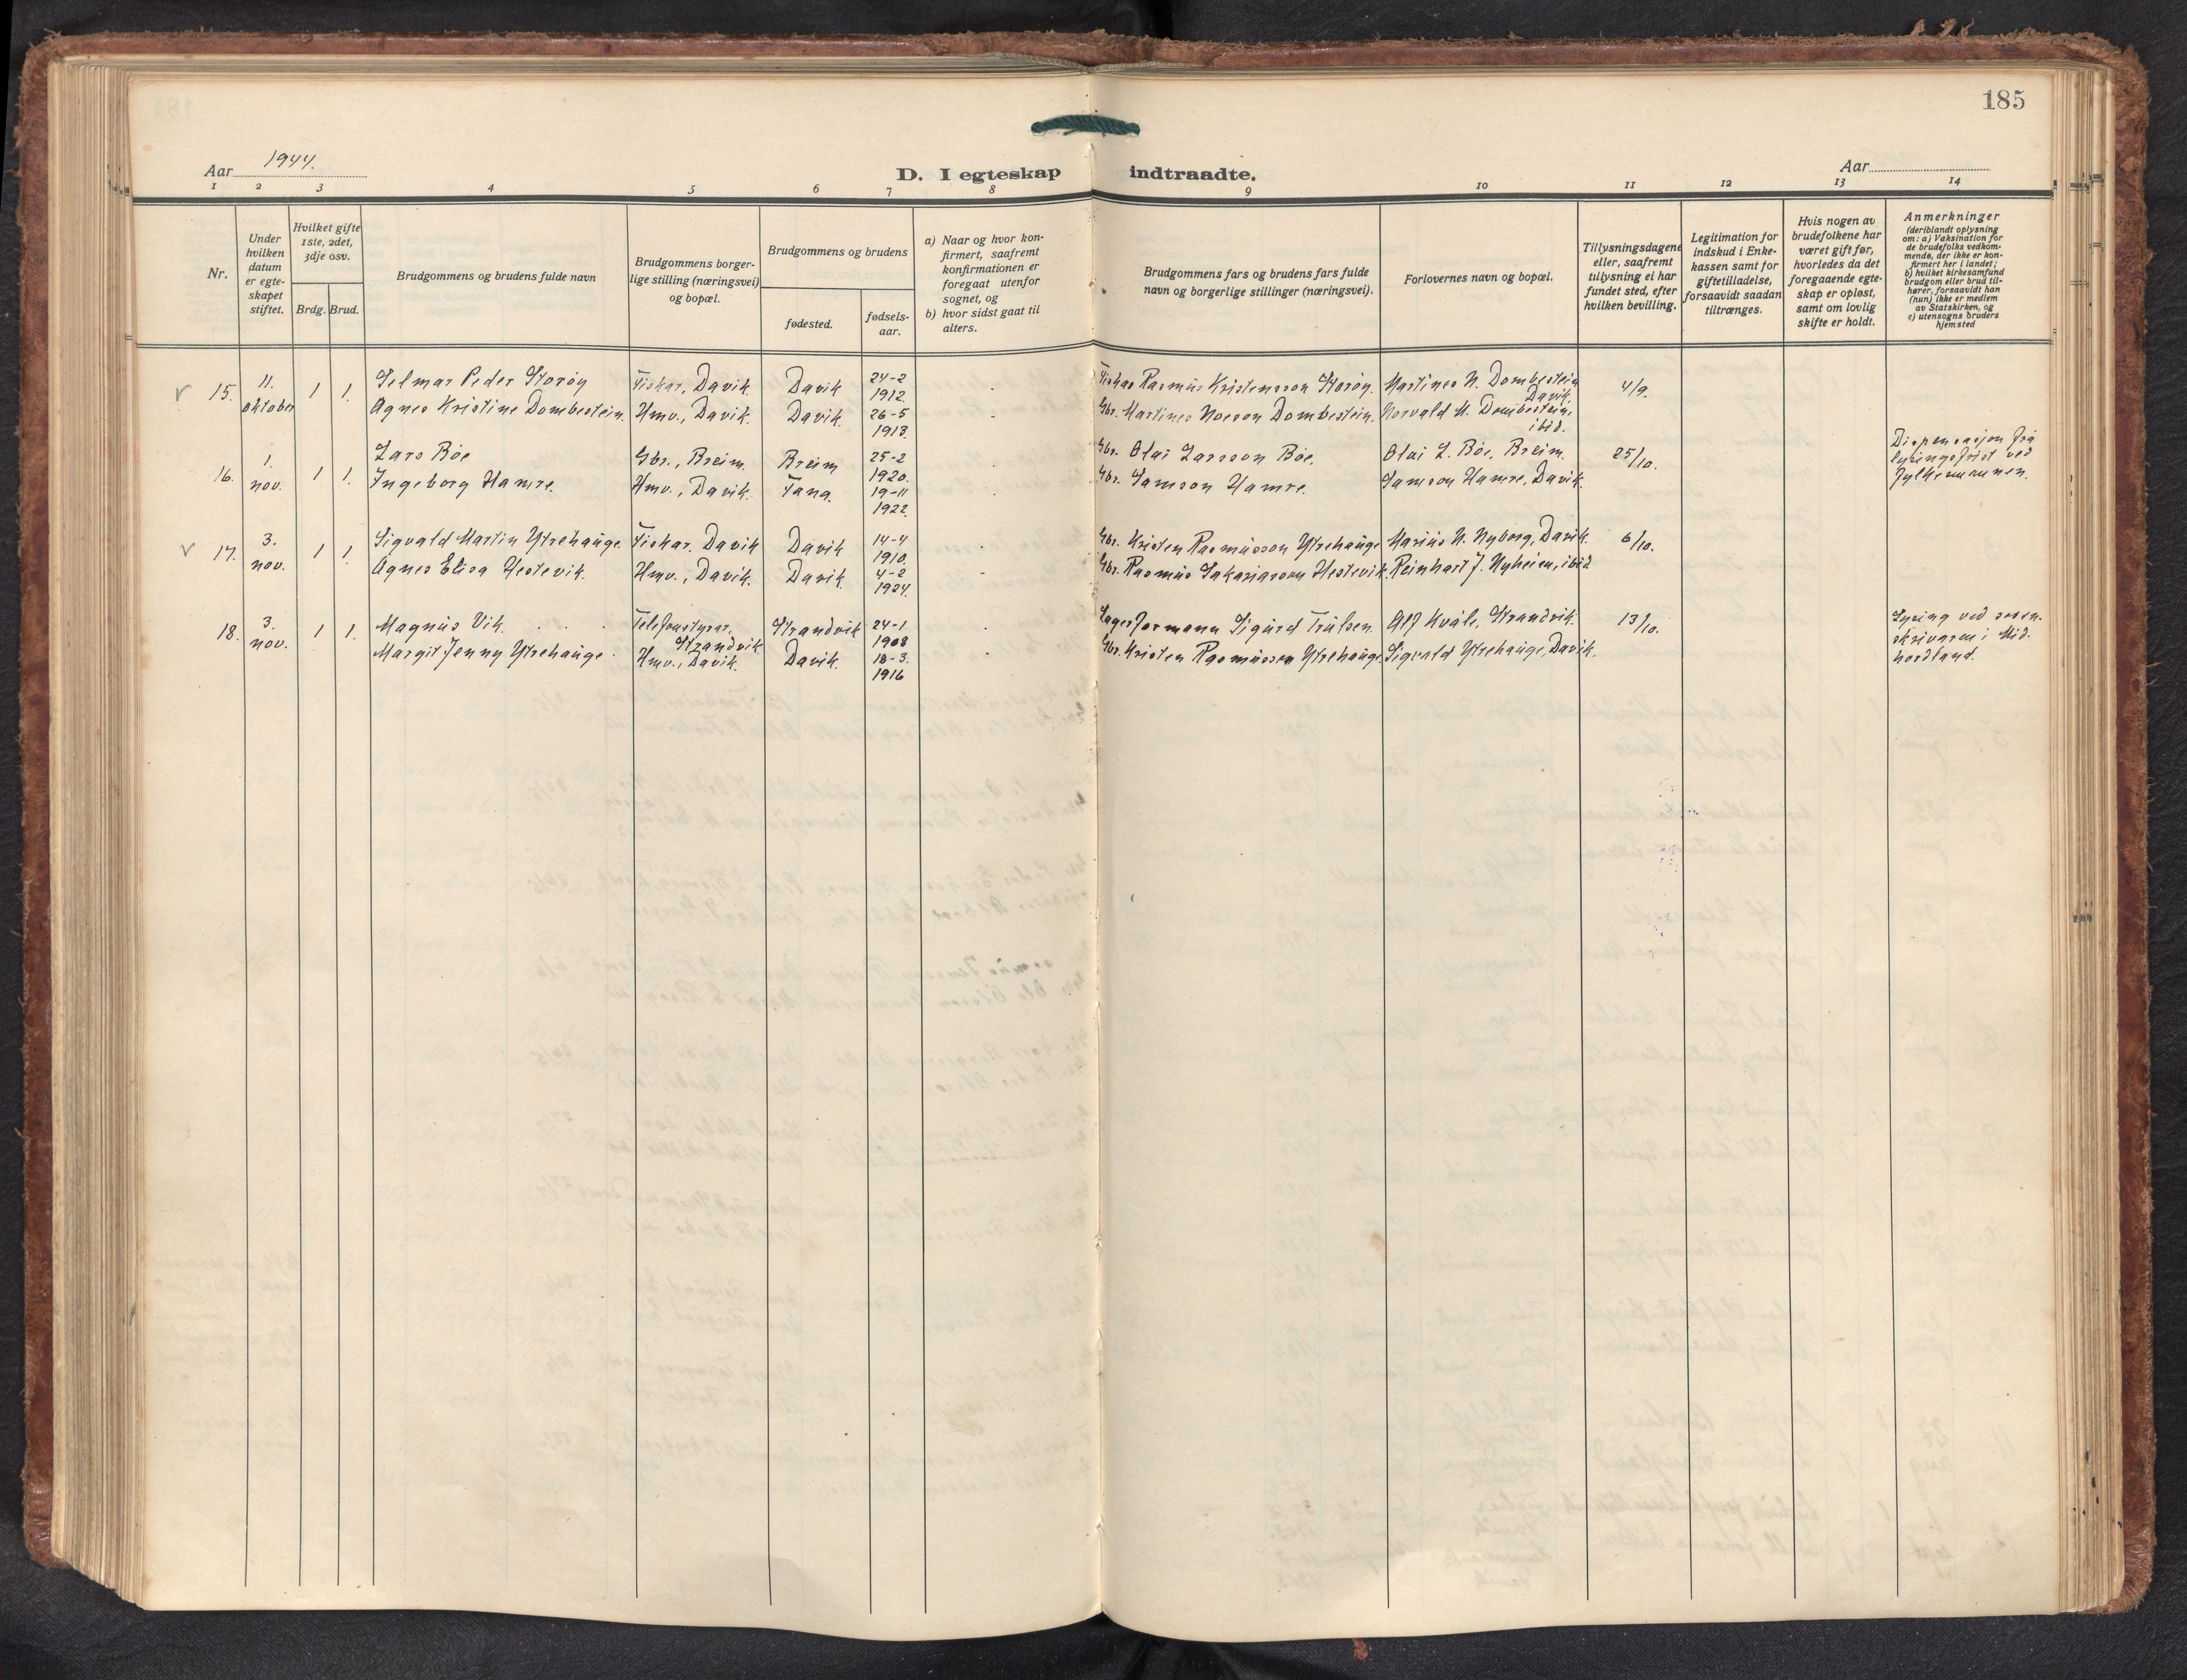 185
Aar 1944.
D. I egteskap indtraadte.
Aar
1 2 3 4 5 6 7 8 9 10 11 12 13 14
Nr.
Under hvilken datum er egte- skapet stiftet.
Hvilket gifte 1ste, 2det, 3dje osv.
Brdg. Brud.
Brudgommens og brudens fulde navn
Brudgommens borger- lige stilling (næringsvei) og bopæl.
Brudgommens og brudens
fødested.
fødsels- aar.
a) Naar og hvor kon- firmert, saafremt konfirmationen er foregaat utenfor sognet, og
b) hvor sidst gaat til alters.
Brudgommens fars og brudens fars fulde navn og borgerlige stillinger (næringsvei).
Forlovernes navn og bopæl.
Tillysningsdagene eller, saafremt tillysning ei har fundet sted, efter hvilken bevilling.
Legitimation for indskud i Enke- kassen samt for giftetilladelse, forsaavidt saadan tiltrænges.
Hvis nogen av brudefolkene har været gift før, hvorledes da det foregaaende egte- skap er opløst, samt om lovlig skifte er holdt.
Anmerkninger (deriblandt oplysning om: a) Vaksination for de brudefolks vedkom- mende, der ikke er kon- firmert her i landet; b) hvilket kirkesamfund brudgom eller brud til- hører, forsaavidt han (hun) ikke er medlem av Statskirken, og c) utensogns bruders hjemsted
15. 11. oktober 1 1.
Selmar Peder Storøy Fiskar, Davik Davik 24-2 1912. Fiskar Rasmus Kristensson Storøy. Martines N. Dombestein Davik. 4/9.
Agnes Kristine Dombestein. Hmv., Davik. Davik. 26-5 1918. Gbr. Martines Noeson Dombestein. Norvald M. Dombestein, ibid.
16. 1. nov. 1 1.
Lars Bøe Gbr., Breim. Breim 25-2 1920. Gbr. Olai Larsson Bøe. Olai L. Bøe, Breim. 25/10. Dispensasjon frå lysingsfrist ved fylkesmannen.
Ingeborg Hamre. Hmv., Davik. Tana. 19-11 1922. Gbr. Samson Hamre. Samson Hamre, Davik.
17. 3. nov. 1 1.
Sigvald Martin Ytrehauge. Fiskar. Davik Davik 14-4 1910. Gbr. Kristen Rasmusson Ytrehauge Marius N. Nyborg, Davik. 6/10.
Agnes Elisa Hestevik. Hmv., Davik. Davik. 4-2 1924. Gbr. Rasmus Sakariasson Hestevik. Reinhart J. Nyheim, ibid
18. 3. nov. 1 1.
Magnus Vik. Telefonstyrar, Strandvik Strandvik 24-1 1908 Lagerformann Sigurd Trulsen. Alf Kvåle, Strandvik. 13/10. Lysing ved soren- skrivaren i Mid- hordland.
Margit Jenny Ytrehauge. Hmv., Davik. Davik. 18-3. 1916 Gbr. Kristen Rasmusson Ytrehauge. Sigvald Ytrehauge, Davik.